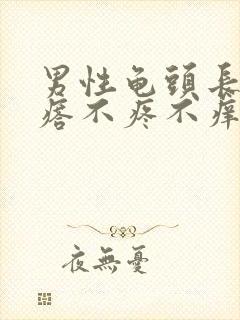 男性龟頭長
痞不疼不癢
夜無憂